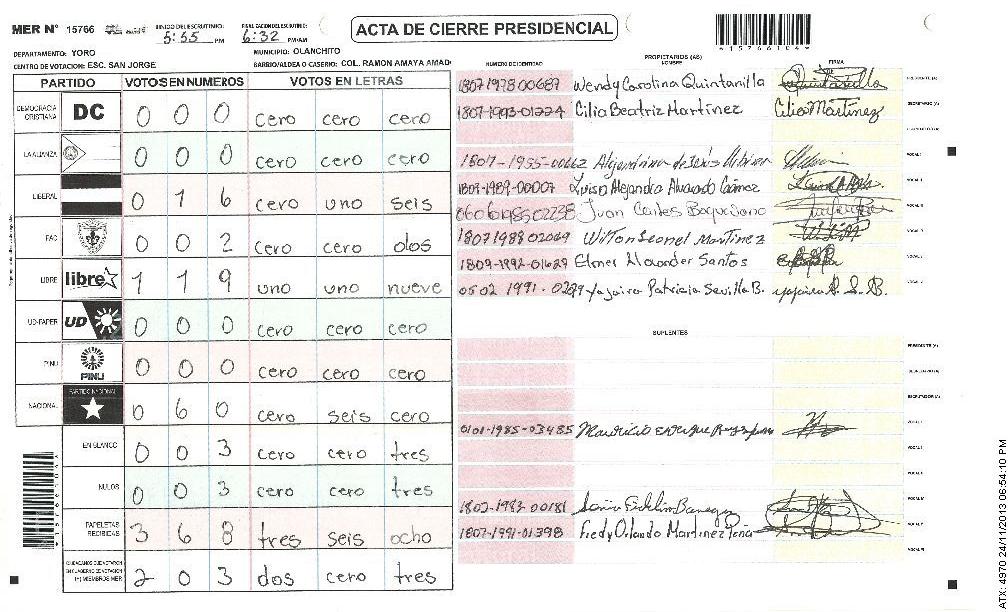 MER N° 15766 INICIO DEL ESCRUTINIO: 5:55 PM FINALIZACION DEL ESCRUTINIO: 6:32 PM/AM
ACTA DE CIERRE PRESIDENCIAL
DEPARTAMENTO: YORO MUNICIPIO: OLANCHITO
CENTRO DE VOTACION: ESC. SAN JORGE BARRIO/ALDEA O CASERIO: COL. RAMON AMAYA AMAD
PARTIDO VOTOS EN NUMEROS VOTOS EN LETRAS
DEMOCRACIA CRISTIANA DC 0 0 0 cero cero cero
LA ALIANZA 0 0 0 cero cero cero
LIBERAL 0 1 6 cero uno seis
FAC 0 0 2 cero cero dos
LIBRE libre 1 1 9 uno uno nueve
UD-FAPER UD 0 0 0 cero cero cero
PINU PINU 0 0 0 cero cero cero
NACIONAL PARTIDO NACIONAL 0 6 0 cero seis cero
EN BLANCO 0 0 3 cero cero tres
NULOS 0 0 3 cero cero tres
PAPELETAS RECIBIDAS 3 6 8 tres seis ocho
CIUDADANOS QUE VOTARON EN CUADERNO DE VOTACION (+) MIEMBROS MER 2 0 3 dos cero tres
PROPIETARIOS (AS)
NUMERO DE IDENTIDAD NOMBRE FIRMA
1807 1978 00687 Wendy Carolina Quintanilla PRESIDENTE (A)
1807-1993-01224 Cilia Beatriz Martinez Cilia Martinez SECRETARIO (A)
1807-1955-00662
1809-1989-00007 Luisa Alejandra Alvarado Gómez
Juan Carlos
1807 1988 02069 Wilton Leonel Martinez
1809-1992-01629 Elmer Alexander Santos
0502 1991-0289 Yajaira Patricia Sevilla B.
SUPLENTES
PRESIDENTE (A)
0101-1985-03485 Mauricio Enrique
1802-1983-00181
1807-1991-01398 Fredy Orlando Martinez
ATX: 4970 24/11/2013 06:54:10 PM